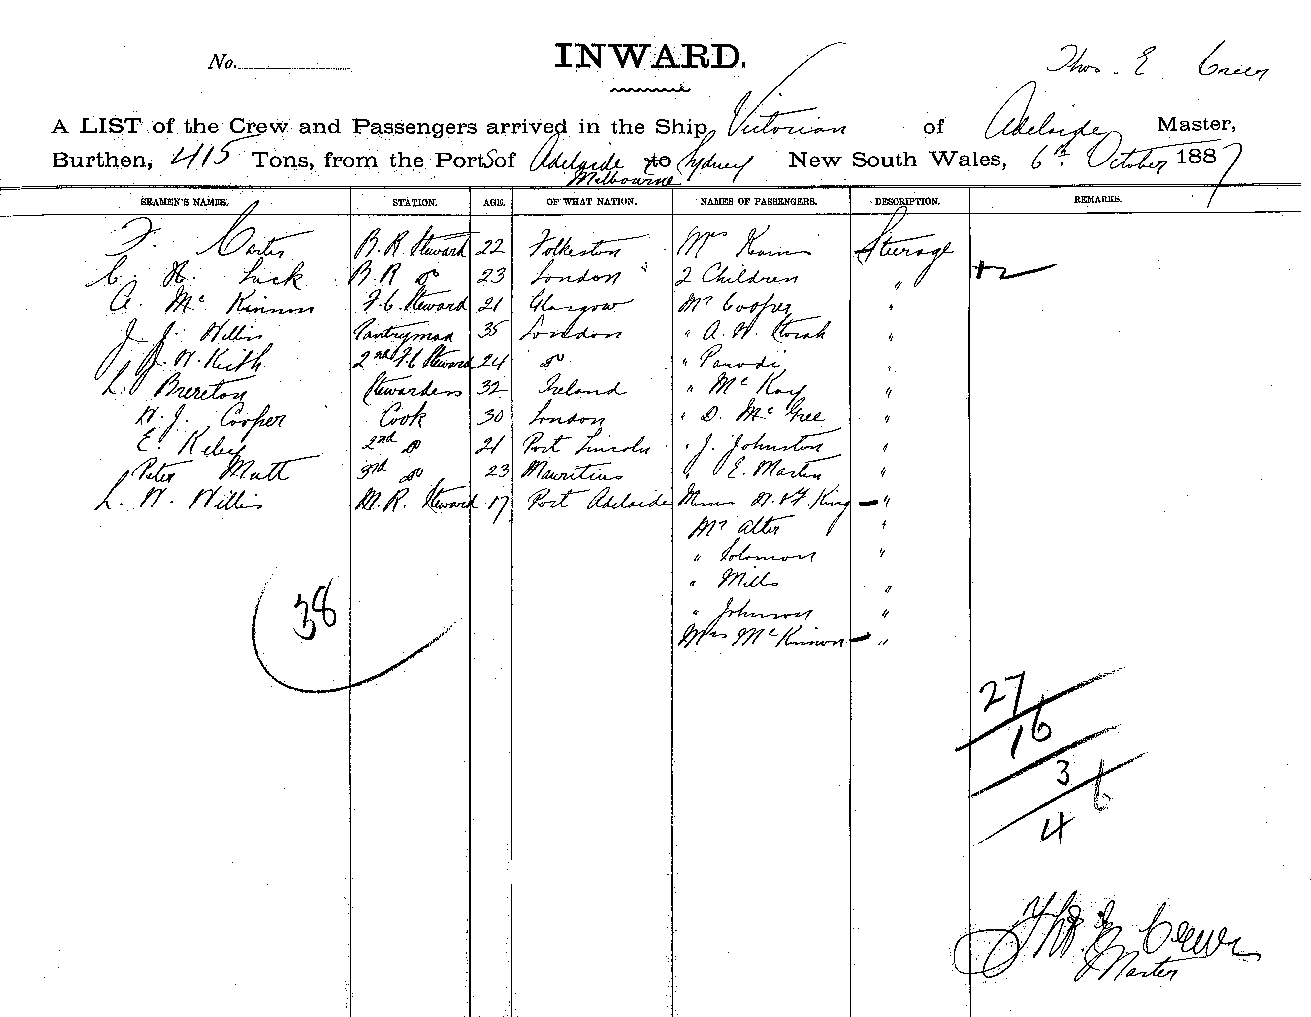 No.
INWARD.
Thos. E. Creer
A LIST of the Crew and Passengers arrived in the Ship Victorian of Adelaide Master,
Burthen, 415 Tons, from the Ports of Adelaide to Sydney New South Wales, 6th October 1887
Melbourne
SEAMEN'S NAMES. STATION. AGE. OF WHAT NATION. NAMES OF PASSENGERS. DESCRIPTION. REMARKS.
F. Carter B. R Steward 22 Folkeston Mrs Steerage
C. H. Luck B. R do 23 London 2 Children " +2
A. Mc Kinnon F. C. Steward 21 Glasgow Mr Cooper "
J. J. Willis Pantryman 35 London " A. W. "
J. W. Keith 2nd F. C Steward 24 do " Parodi "
L. Brereton Stewardess 32 Ireland " Mc Kay "
W. J. Cooper Cook 30 London " D. Mc Gee "
E. Kelly 2nd do 21 Port Lincoln " J. Johnston "
Peter Mutt 3rd do 23 Mauritius " E. Martin "
L. W. Willis M. R. Steward 17 Port Adelaide Misses W. & F. King "
Mr Alter "
" Solomon "
" Mills "
" Johnson "
Mrs Mc Kinnon "
38
27
16
3 6
4
Thos. E. Creer
Master